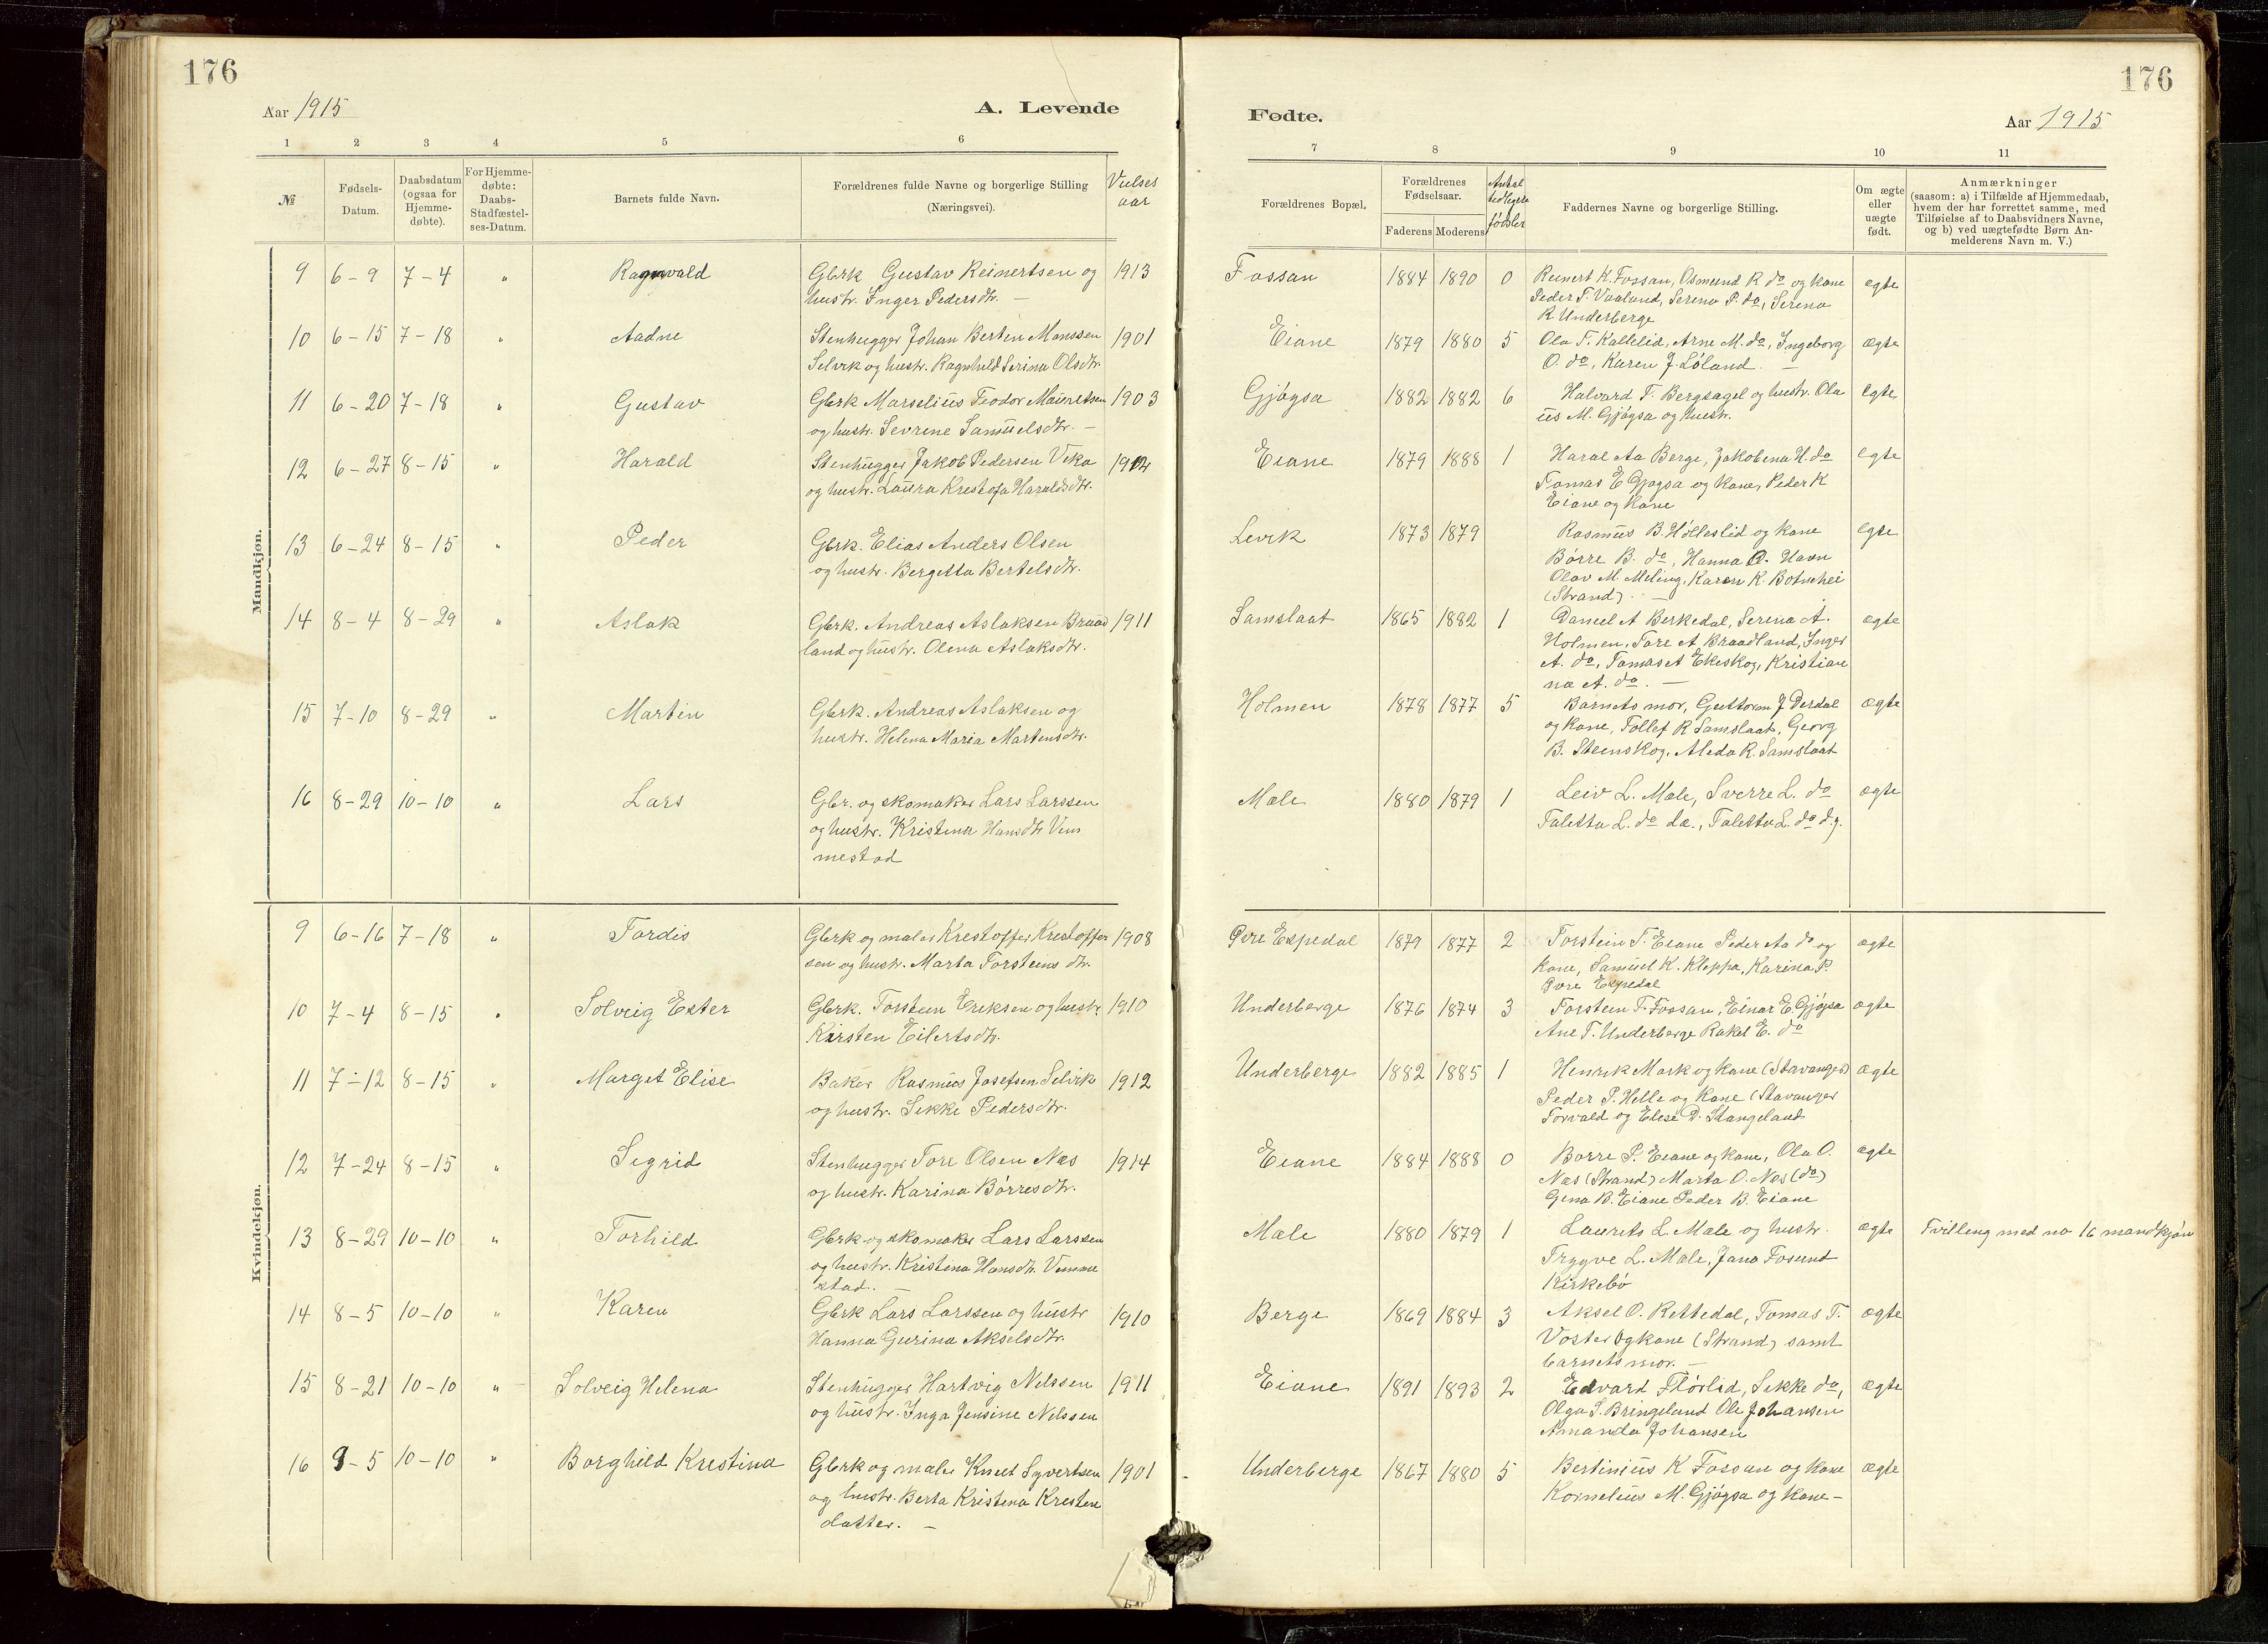 176
Aar 1915
A. Levende
1 2 3 4 5 6
№
Fødsels-
Datum.
Daabsdatum
(ogsaa for
Hjemme-
døbte).
For Hjemme-
døbte:
Daabs-
Stadfæstel-
ses-Datum.
Barnets fulde Navn.
Forældrenes fulde Navne og borgerlige Stilling
(Næringsvei).
Vielses
aar
Mandkjøn.
9 6-9 7-4 " Ragnvald Gbrk Gustav Reinertsen og 1913
hustr. Inger Pedersdtr. —
10 6-15 7-18 " Aadne Stenhugger Johan Berten Monssen 1901
Selvik og hustr. Ragnhild Serina Olsdtr.
11 6-20 7-18 " Gustav Gbrk Marselius Teodor Mauritsen 1903
og hustr. Sevrine Samuelsdtr. —
12 6-27 8-15 " Harald Stenhugger Jakob Pedersen Veka 1912
og hustr. Laura Kristofa Haraldsdtr.
13 6-24 8-15 " Peder Gbrk. Elias Anders Olsen
og hustr. Bergetta Bertelsdtr.
14 8-4 8-29 " Aslak Gbrk. Andreas Aslaksen Braad 1911
land og hustr. Olena Aslaksdtr.
15 7-10 8-29 " Martin Gbrk. Andreas Aslaksen og
hustr. Helena Maria Martensdtr.
16 8-29 10-10 " Lars Gbr. og skomaker Lars Larssen
og hustr. Kristina Hansdtr Vem
mestad
Kvindekjøn.
9 6-16 7-18 " Tordis Gbrk og maler Krestoffer Krestoffer 1908
sen og hustr. Marta Torsteins dtr.
10 7-4 8-15 " Solveig Ester Gbrk. Torstein Eriksen og hustr 1910
Kirsten Eilertsdtr.
11 7-12 8-15 " Marget Elise Baker Rasmus Josefsen Selvik 1912
og hustr. Sekke Pedersdtr.
12 7-24 8-15 " Sigrid Stenhugger Tore Olsen Næs 1914
og hustr. Karina Børresdtr.
13 8-29 10-10 " Torhild Gbrk og skomaker Lars Larssen
og hustr. Kristina Hansdtr. Vemme
stad. —
14 8-5 10-10 " Karen Gbrk Lars Larssen og hustr 1910
Hanna Gurina Akselsdtr.
15 8-21 10-10 " Solveig Helena Stenhugger Hartvig Nelssen 1911
og hustr. Inga Jensine Nelssen
16 9-5 10-10 " Borghild Krestina Gbrk og maler Knut Syvertsen 1901
og hustr. Berta Kristina Kresten
datter. —
176
Fødte.
Aar 1915
7 8 9 10 11
Forældrenes Bopæl.
Forældrenes
Fødselsaar.
Faderens Moderens
Antal
tidligere
fødsler
Faddernes Navne og borgerlige Stilling.
Om ægte
eller
uægte
født.
Anmærkninger
(saasom: a) i Tilfælde af Hjemmedaab,
hvem der har forrettet samme, med
Tilføielse af to Daabsvidners Navne,
og b) ved uægtefødte Børn An-
melderens Navn m. V.)
Fossan 1884 1890 0 Reinert K. Fossan, Osmund R do og kone ægte
Peder T. Vaaland, Serena P. do, Serena
R Underberge
Eiane 1879 1880 5 Ola T. Kallelid, Arne M. do, Ingeborg ægte
O. do, Karen J. Løland. —
Gjøgsa 1882 1882 6 Halvard T. Bergsagel og hustr. Ola ægte
us M. Gjøgsa og hustr.
Eiane 1879 1888 1 Haral Aa Berge, Jakobena H. do ægte
Tomas E Gjøgsa og kone, Peder K
Eiane og kone
Levik 1873 1879 Rasmus B. Holleslid og kone ægte
Børre B. do, Hanna O. Havn
Olav M. Meling, Karen K. Botnehei
(Strand). —
Samslaat 1865 1882 1 Daniel A Berkedal, Serena A. ægte
Holmen, Tore A Braadland, Inger
A. do, Tomas A Ekeskog, Kristian
na A. do. —
Holmen 1878 1877 5 Barnets mor, Guttorm J Dørdal ægte
og kone, Tollef R Samslaat, Georg
B. Steenskog, Aleda R. Samslaat
Mæle 1880 1879 1 Leiv L. Mæle, Sverre L. do ægte
Taletta L. do d.æ., Taletta L. do d.y.
Øvre Espedal 1879 1877 2 Torstein T. Eiane Peder Aa do og ægte
kone, Samuel K. Kleppa, Karina P.
Øvre Espedal
Underberge 1876 1874 3 Torstein T. Fossan, Einar E. Gjøgsa ægte
Ane T. Underberge Rakel E. do
Underberge 1882 1885 1 Henrik Mark og kone (Stavanger) ægte
Peder P. Helle og kone (Stavanger
Torvald og Elise D. Stangeland
Eiane 1884 1888 0 Børre P. Eiane og kone, Ola O. ægte
Næs (Strand) Marta O. Næs (do)
Gina B. Eiane Peder B. Eiane
Mæle 1880 1879 1 Laurits L Mæle og hustr. ægte Tvilling med no 16 mandkjøn
Trygve L. Mæle, Jana Fosund
Kirkebø
Berge 1869 1884 3 Aksel O. Rettedal, Tomas T. ægte
Voster og kone (Strand) samt
barnets mor. —
Eiane 1891 1893 2 Edvard Flørlid, Sekke do, ægte
Olga S. Bringeland Ole Johansen
Amanda Johansen
Underberge 1867 1880 5 Bertinius K Fossan og kone ægte
Kornelius M. Gjøgsa og kone —